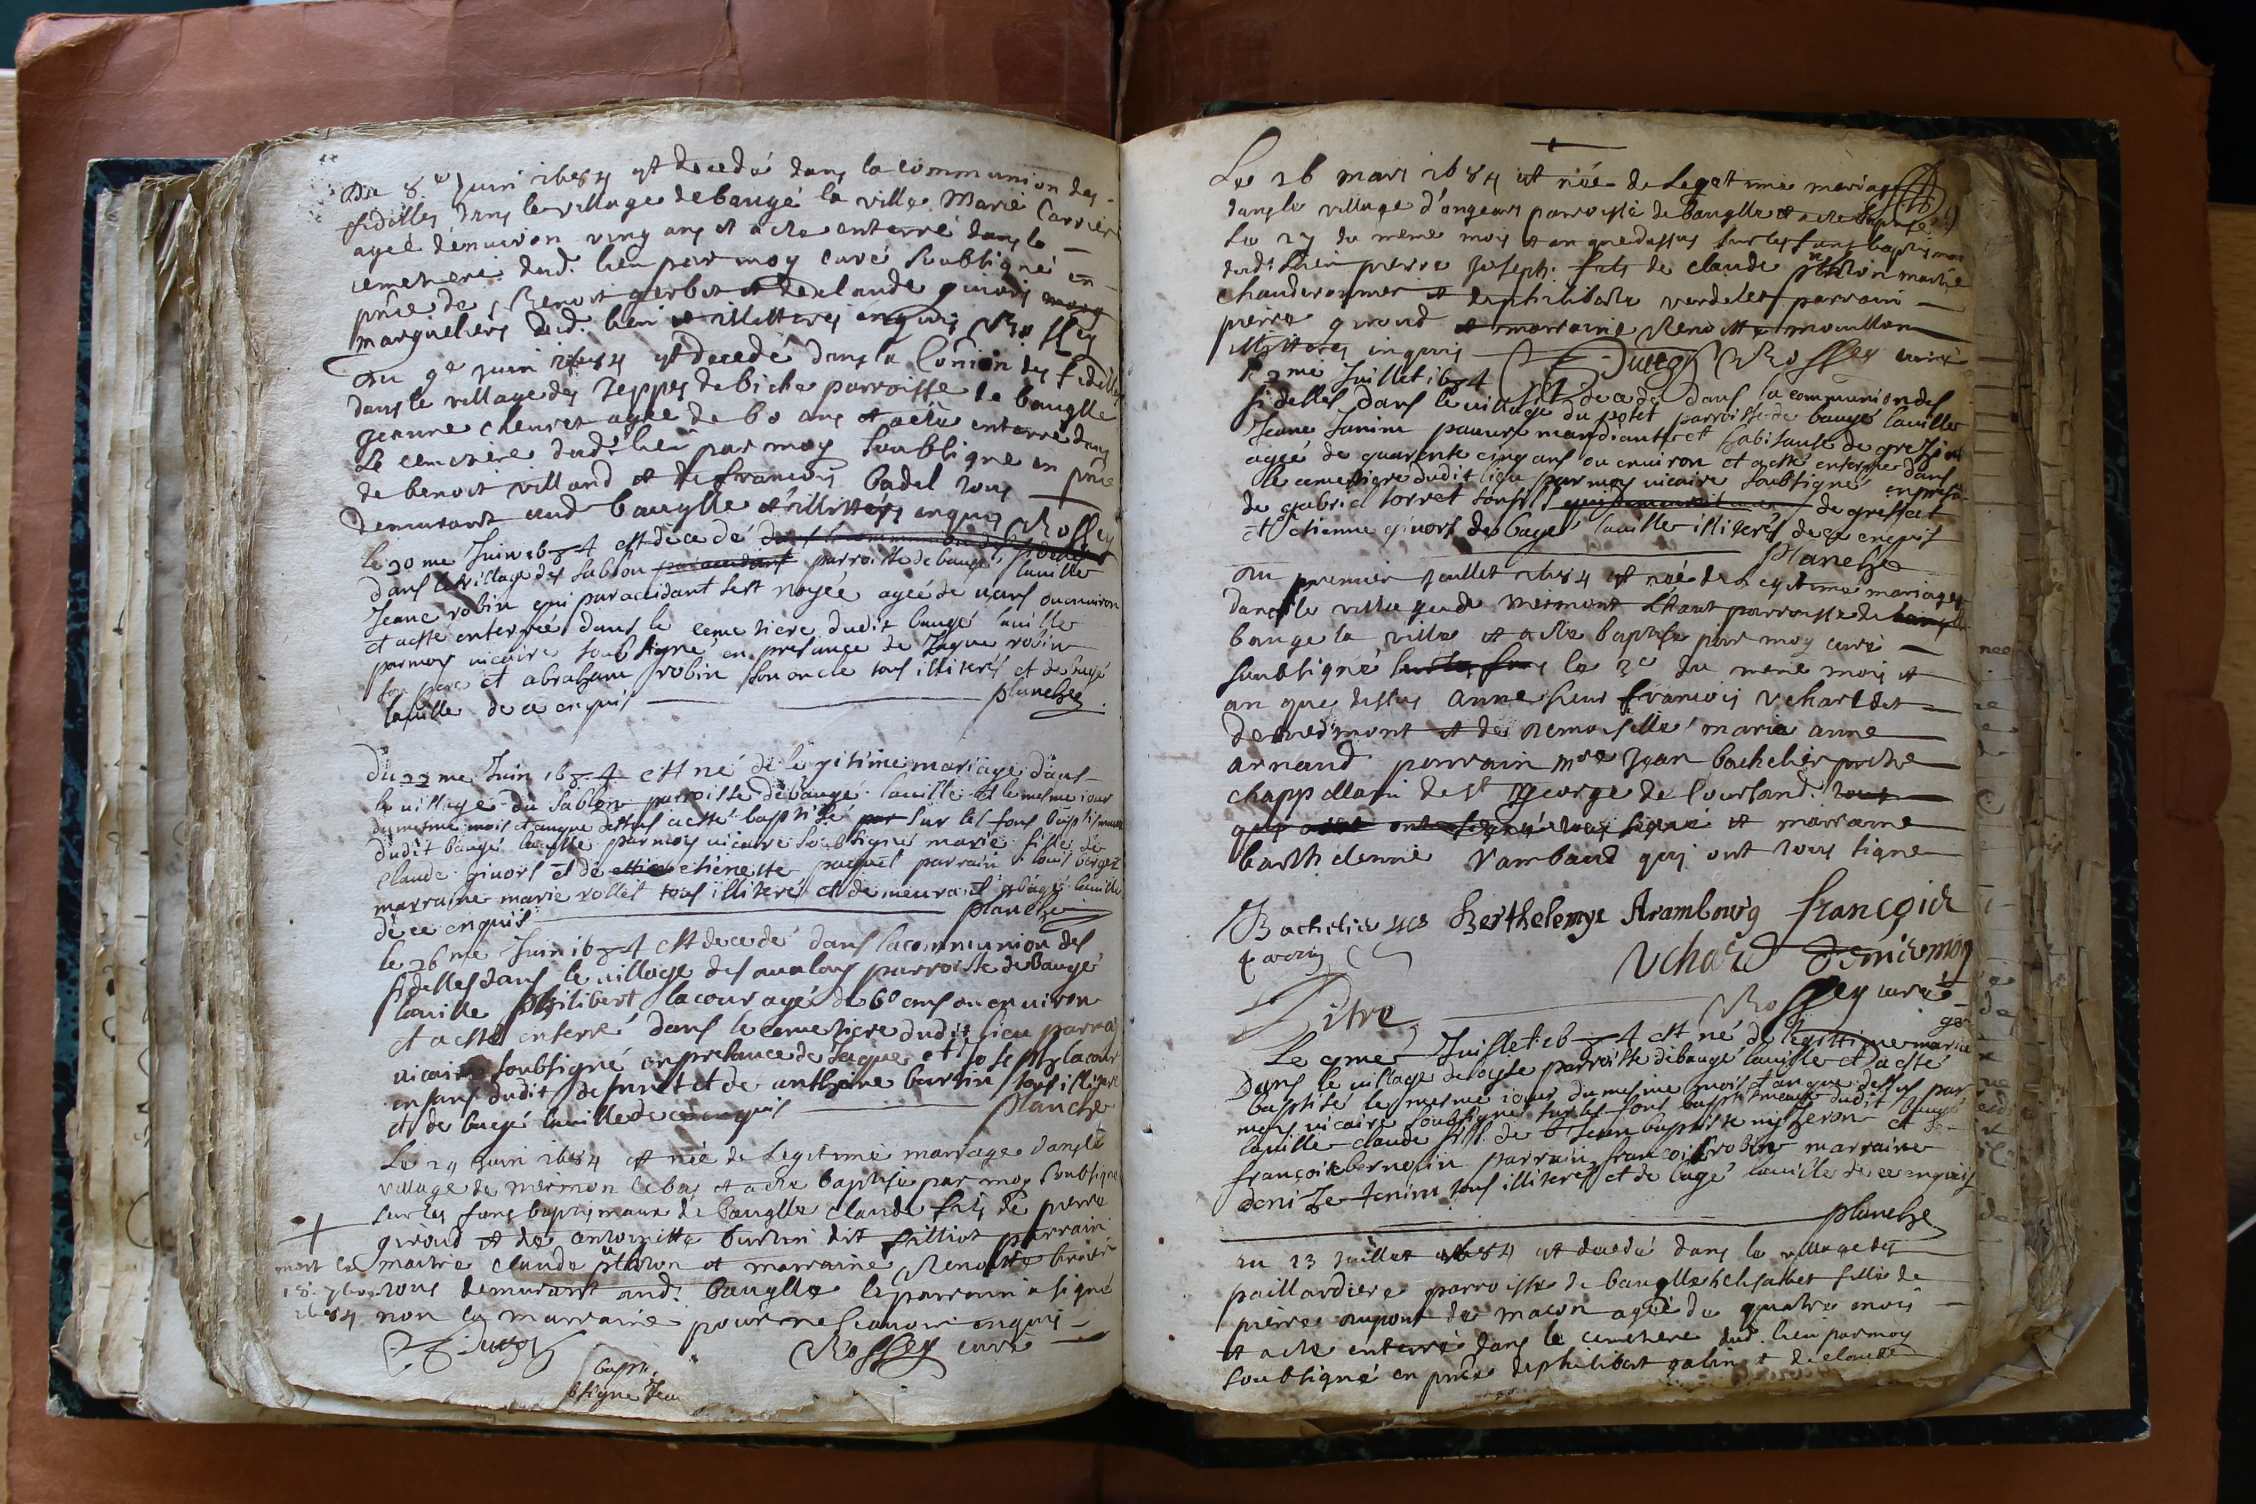 Du 8e Juin 1684 est decedé dans la communion des
fidelles dans le village de baugé la ville Marie Carrier
ageé d'enuiron ving ans et a este enterré dans le
cemetiere dud. lieu par moy curé soubsigné en
pnce de Benoist gerbot et de claude giuors
margueliers dud. lieu et illitteres enquis Rossey
Du 9e Juin 1684 est decedé dans la Conion des fidelles
dans le village des Teppes de biche parroisse de bauglle
Jeanne cheuret agée de 60 ans et a este enterré dans
le cemetiere dud. lieu par moy soubsigné en pnce
de benoist villard et de francois badel tous
demurant aud bauglle et illitterés enquis Rossey
le 20 me Juin 1684 est decedé
dans le village des sablon parroisse de baugé lauille
Jeane robin qui par accidant sest noyée ageé de ans ou enuiron
et a esté enterrée dans le cemetiere dudit baugé lauille
par moy uicaire soubsigné en presance de Jaque robin
son pere et abraham robin son oncle tous illiterés et de baugé
lauille de ce enquis planche
Du 22 me Juin 1684 est né de legitime mariage dans
le uillage du sablon parroisse de baugé lauille et le mesme iour
du mesme mois et an que dessus a esté baptisé par sur les fons baptismaux
dudit baugé lauille par moy uicaire soubsigné marie fille de
claude giuors et de etienette paquet parrain louis
marraine marie rollet tous illiteré et demeurant a bagé lauille
de ce enquis planche
le 26 me Juin 1684 est decedé dans la communion des
fidelles dans le uillage des aualons parroisse de Baugé
lauille philibert lacour agé de 60 ans ou enuiron
et a esté enterré dans le cemetiere dudit lieu par moy
uicaire soubsigné en presance de Jaque et Joseph lacour
enfans dudit defunct et de anthoine burtin tous illiteré
et de bagé lauille de ce enquis planche
Le 29 Juin 1684 est née de Legitime mariage dans le
village de mermon le bas et a este baptisé par moy soubsigné
sur les fons baptismaux de bauglle claude fils de pierre
giroud et de antoinette burtin dit filliot parrain
maitre claude et marraine Renoiste
tous demurant aud. bauglle le parrain a signé
non la marraine pour ne scauoir enquis
Rossey curé
mort le
18. 7bre
1684
bapti
signe Jean
Le 26 mars 1684 est née de Legitime mariage
dans le village d'ongeurs parroisse de bauglle et a este baptisé
Le 27 du meme mois et an que dessus sur les fons baptismaux
dudt. lieu pierre Joseph fils de claude maitre
chauderonnier et de philiberte verdelet parrain
pierre giroud et marraine Renoitte mouillon
illitterés enquis Rossey curé
le 2 me Juillet 1684 est decedé dans la communion des
fidelles dans le uillage du potet parroisse de baugé lauille
Jeane Janin pauure mandiante et habitante de
ageé de quarente cinq ans ou enuiron et a esté enterrée dans
le cemetiere dudit lieu par moy uicaire soubsigné en presā
de gabriel torret de
et etienne giuors de bagé lauille illiterés de ce enquis
planche
Du premier Juillet 1684 est née de Legitime mariage
dans le village de mermont le haut parroisse de
bauge la ville et a este baptisé par moy curé
soubsigné le 3e du mene mois et
an que dessus anne sieur francois Vchard dit
demermont et de Demoiselle marie anne
arnaud parrain mre Jean bachelier prestre
chappellain de St George de Courtand.
et marraine
barthelemie rambaud qui ont tous signé
Bachelier Berthelemye Arambourg francois
Vchard Demermon
Rossey curé
Le me Juillet 1684 est né de legitime maria
ge
Dans le uillage de ogle parroisse de baugé lauille et a esté
baptisé le mesme iour du mesme mois et an que dessus par
moy uicaire soubsigné sur les fons baptismaux dudit baugé
lauille claude fils de Jean baptiste migeron et de
françoise bernolin parrain françois robin marraine
denize Janin tous illiterés et de bagé lauille de ce enquis
planche
Du 13 Juillet 1684 est decedé dans le village des
paillardiere parroisse de bauglle helisabet fille de
pierre dupont de macon ageé de quatre mois
et a este enterré dans le cemetiere dud. lieu par moy
soubsigné en pnce de philibert galin et de claude